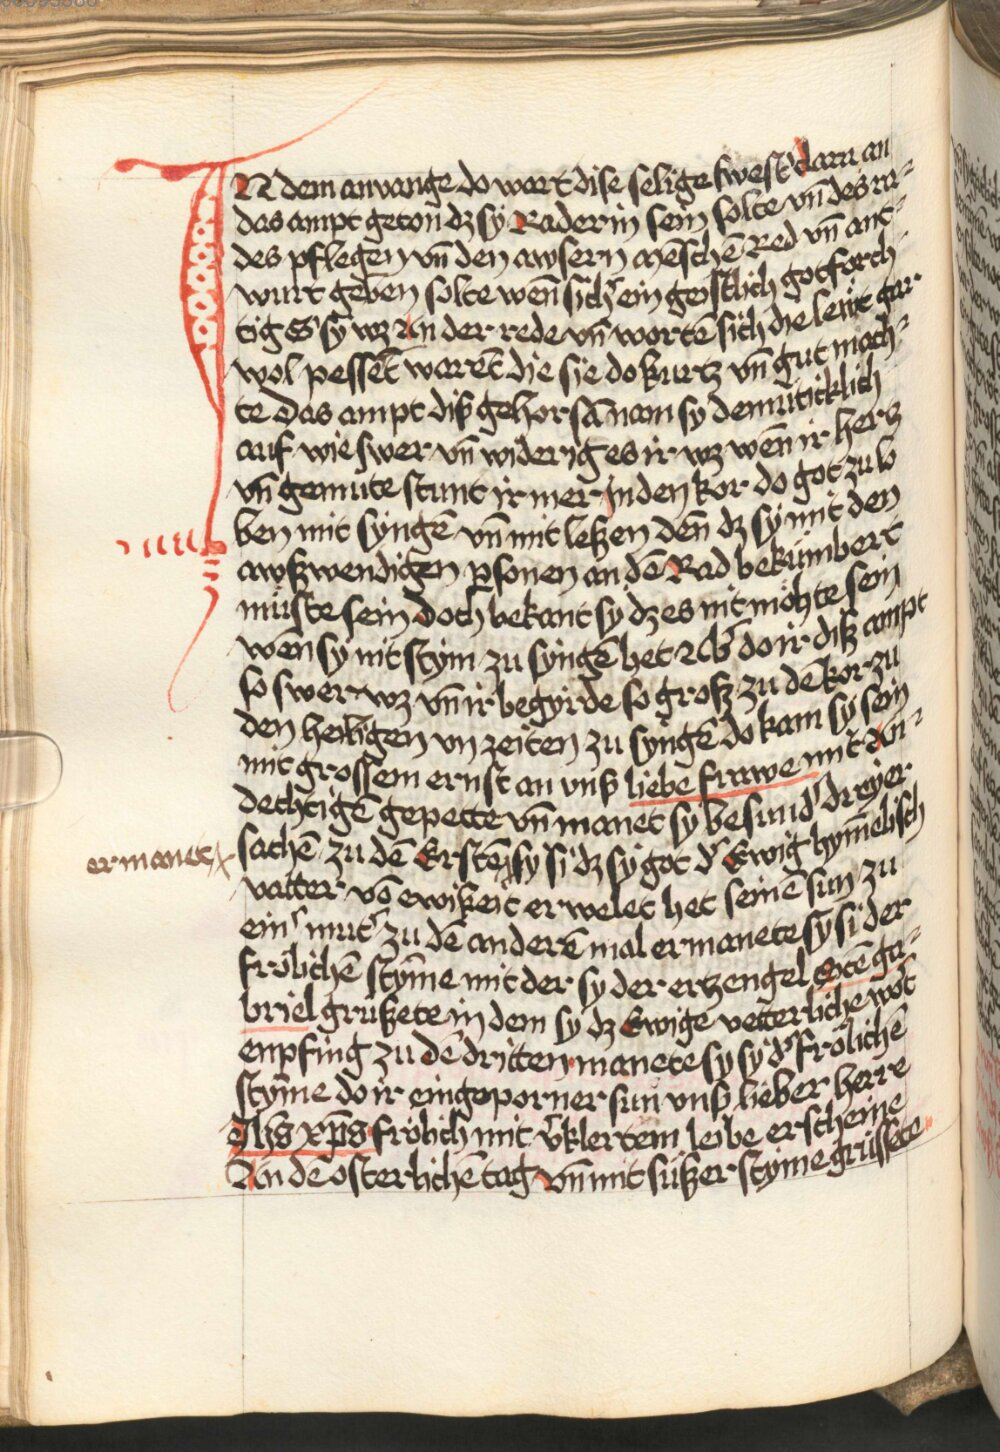 IN dem anvange do wart dise selige swest' darn an
das ampt geton dz sy Raderin sein solte vn̄ des ra-
des pflegen vn̄ den awsern mēschē Red vn̄ ant-
wurt geben solte wen̄ sich ein geistlich gotforch
tig S' sy wz An der rede vn̄ wortē sich die lewt gar
wol pessert warēt die sie do kurtz vn̄ gut mach-
te Das ampt diß gehorsā nam sy demuticklich
auf wie swer vn̄ widerig es ir wz wen̄ ir hertz
vn̄ gemute stunt ir mer in den kor do got zu lo
ben mit syngē vn̄ mit leßen den̄ dz sy mit den
awßwendigen psonen an dē Rad bekümbert
müste sein doch bekant sy dz es nit möhte sein
wen̄ sy nit stym zu syngē het Ab' do ir diß ampt
so swer wz vn̄ ir begyrde so groß zu dē kor zu
den heiligen vn zeiten zu syngē do kam sy sein
mit grossem ernst an vnß liebe frawe mit An-
dechtigē gepette vn̄ manet sy besund' dreyer
ermanet
sachē zu dē Erstē sy si dz sy got d' Ewig hym̄elisch
vatter vō ewikeit erwelet het seinē sun zu
ein' mut' zu dē anderē mal ermanete sy si der
frölichē stym̄e mit der sy der ertzengel Sctē ga-
briel grußete in dem sy dz Ewige vetterliche wot
enpfing zu dē dritten manete sy sy d' frölichē
stym̄e do ir eingeporner sun vnß lieber herre
Jhs xps frölich mit v'klertem leibe erscheine
An dē osterlichē tag vn̄ mit süßer stym̄e grüssete